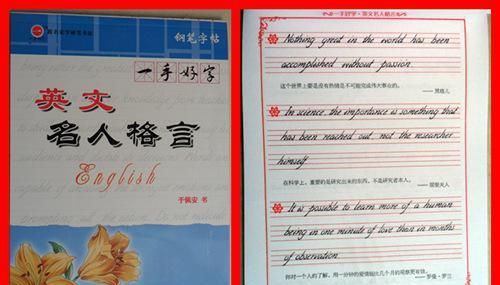 钢笔字帖
一手好字
英文
名人格言
English
于佩安 书
一手好字·英文名人格言
Nothing great in the world has been
accomplished without passion.
这个世界上要是没有热情是不可能完成伟大事的。
——黑格儿
In science the importance is something that
has been reached out, not the researcher
himself.
在科学上,重要的是研究出来的东西,不是研究者本人。
——居里夫人
It is possible to learn more of a human
being in one minute of love than in months
of observation.
你对一个人的了解,用一分钟的爱情能比几个月的观察更有效。
——罗曼·罗兰